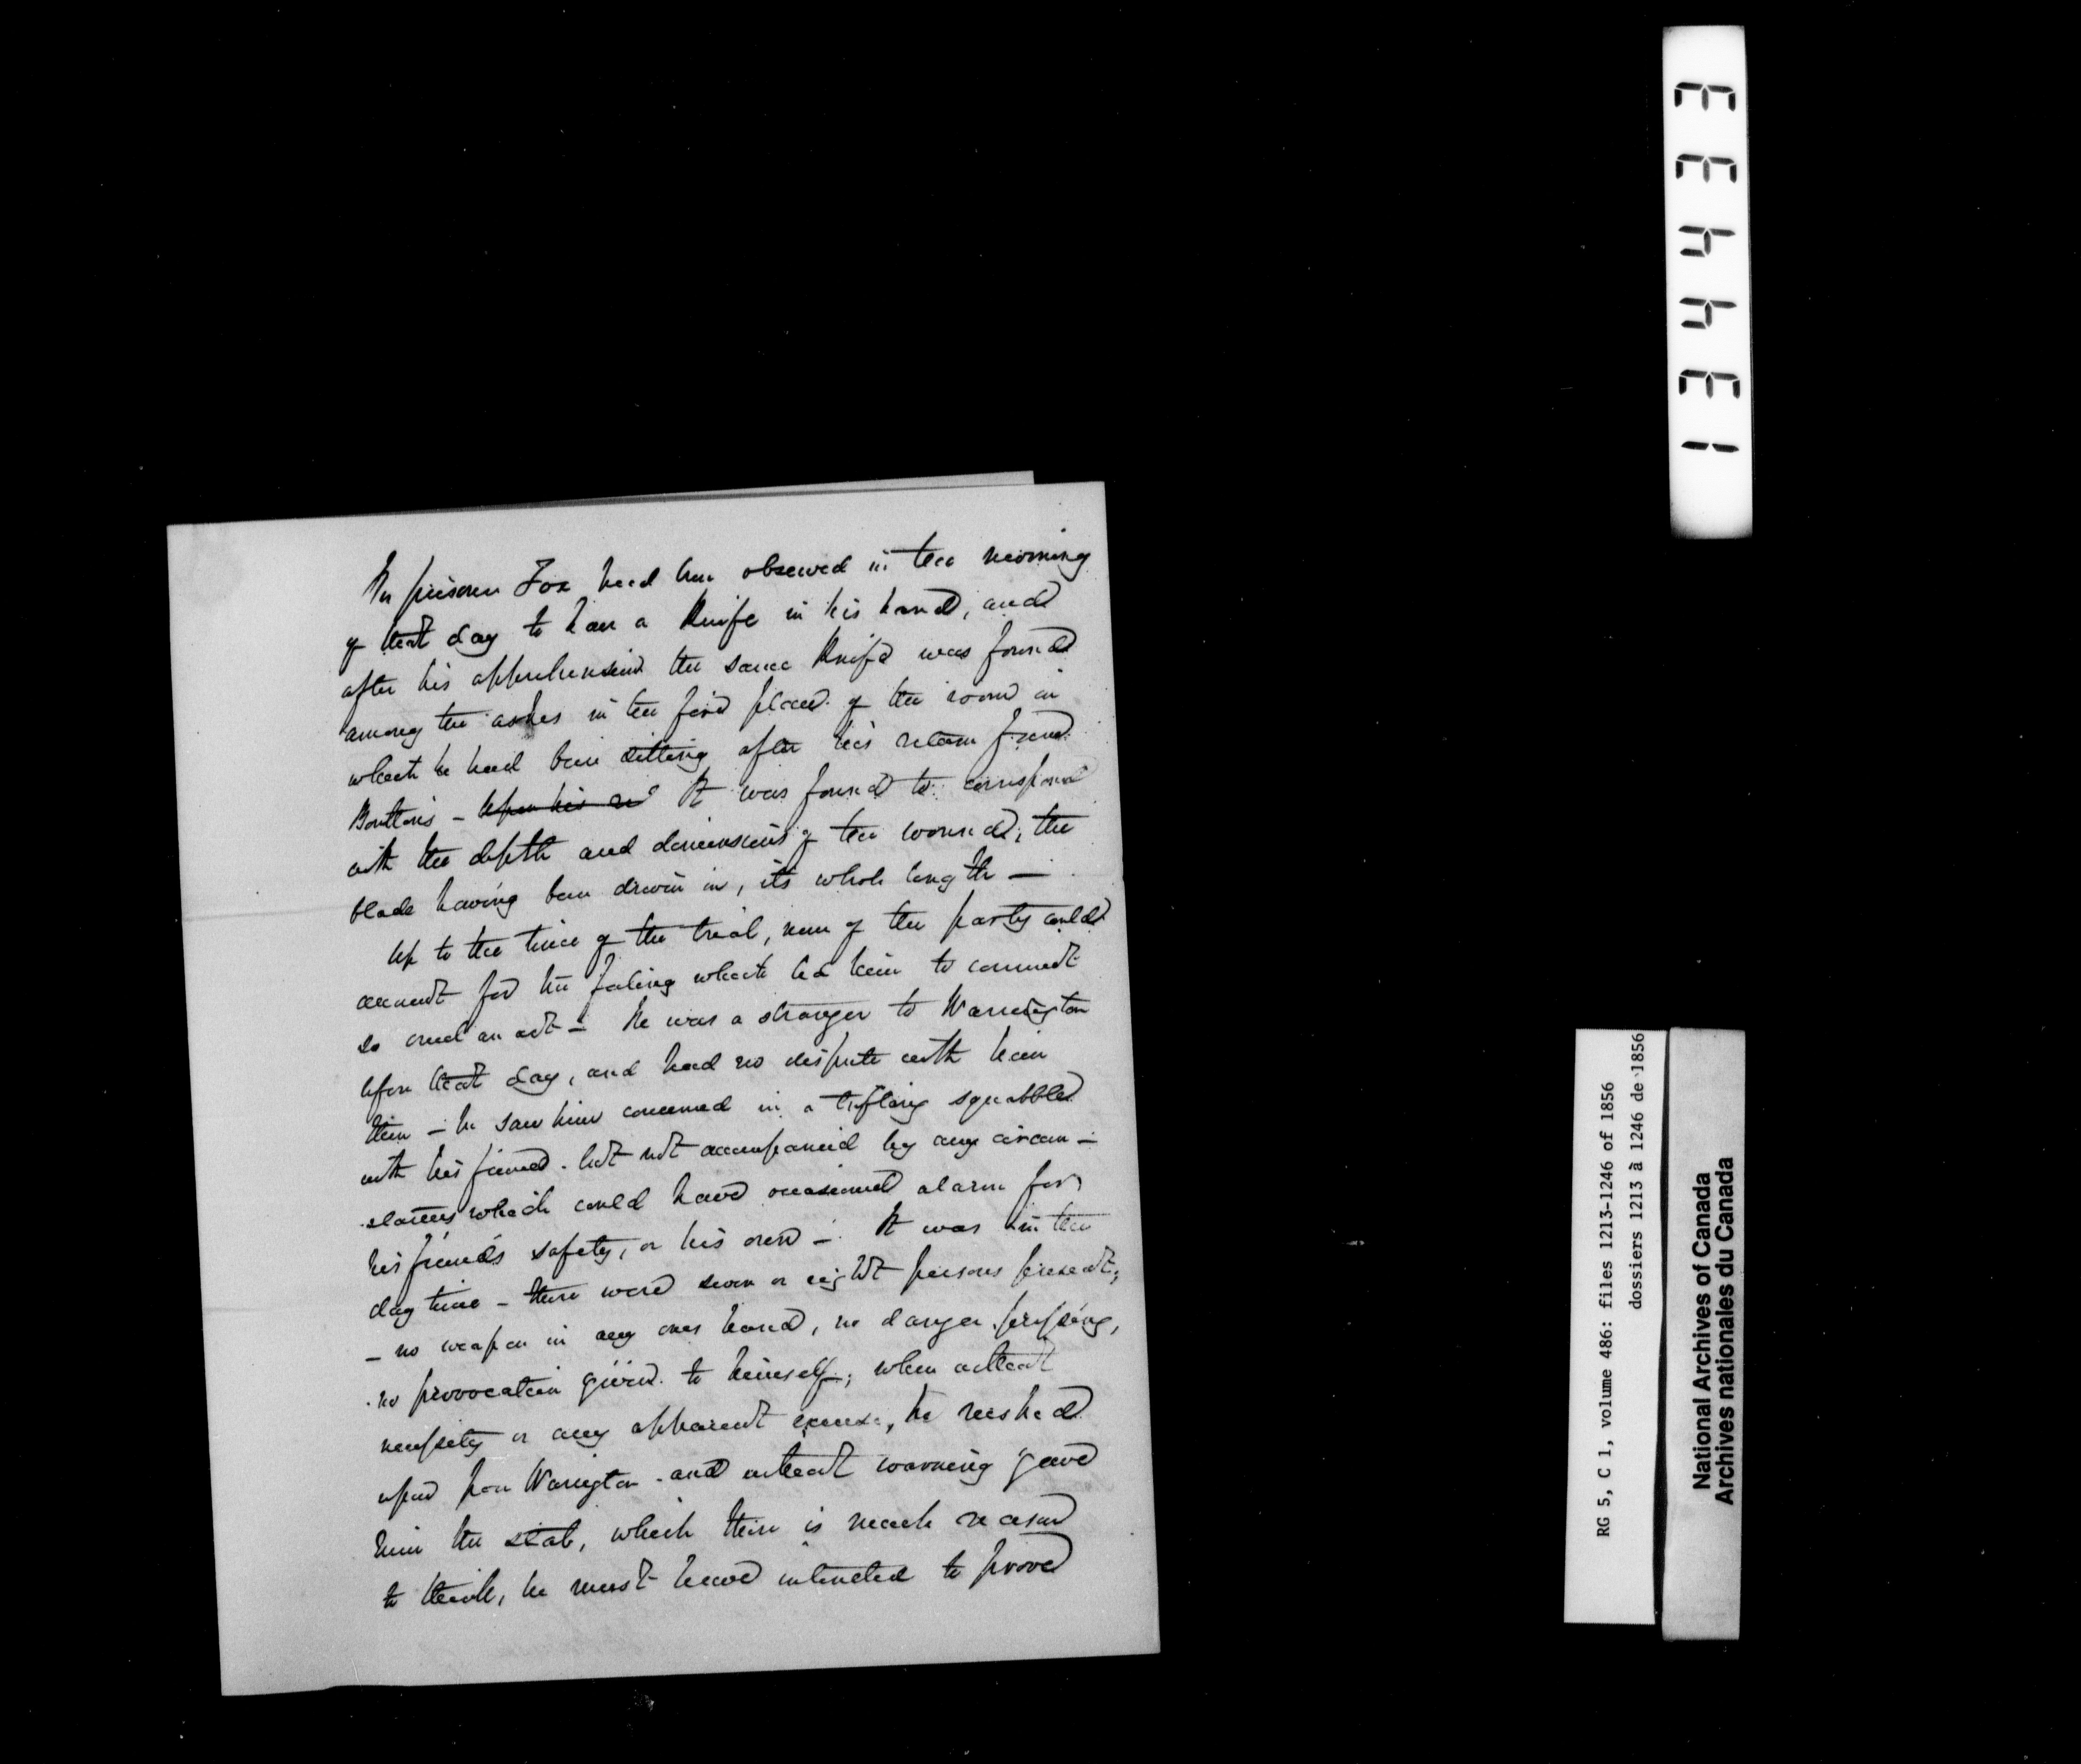 The prisoner Fox had been observed in the morning
of that day to have a knife in his hand, and
after his apprehension the same knife was found
among the ashes in the fire place of the room in
which he had been sitting after his return from
Boultons - Upon his re It was found to correspond
with the depth and dimensions of the wound; the
blade having been driven in, its whole length —
Up to the time of the trial, none of the party could
account for the feeling which led him to commit
so cruel an act - He was a stranger to Warrington
before that day, and had no dispute with him
then - he saw him concerned in a trifling squabble
with his friend. but not accompanied by any circum-
stances which could have occasioned alarm for
his friend's safety, or his own -. It was in the
day time - there were seven or eight persons present;
- no weapon in any ones hand, no danger pressing,
no provocation given to himself; when without
necessity or any apparent excuse, he rushed
upon poor Warrington - and without warning gave
him the stab, which there is much reason
to think, he must have intended to prove
133443 3
RG 5, C 1, volume 486: files 1213-1246 of 1856
dossiers 1213 à 1246 de 1856
National Archives of Canada
Archives nationales du Canada